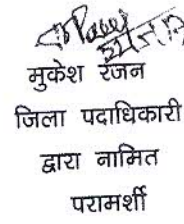 मुकेश रंजन
जिला पदाधिकारी
द्वारा नामित
परामर्शी